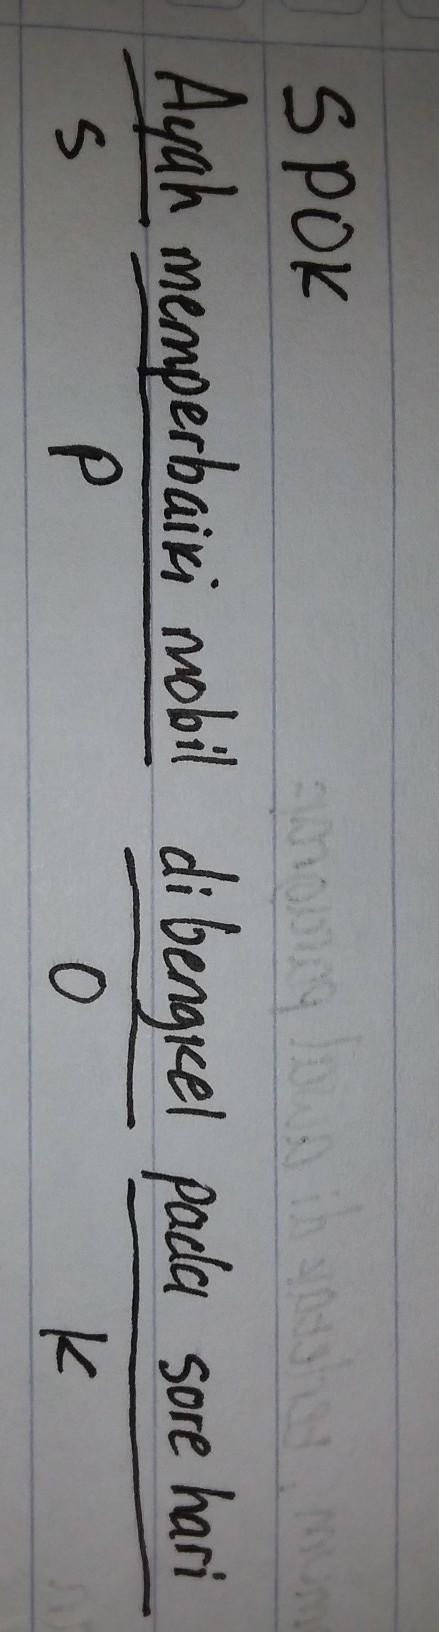 SPOK
Ayah memperbaiki mobil di bengkel pada sore hari
S P O K